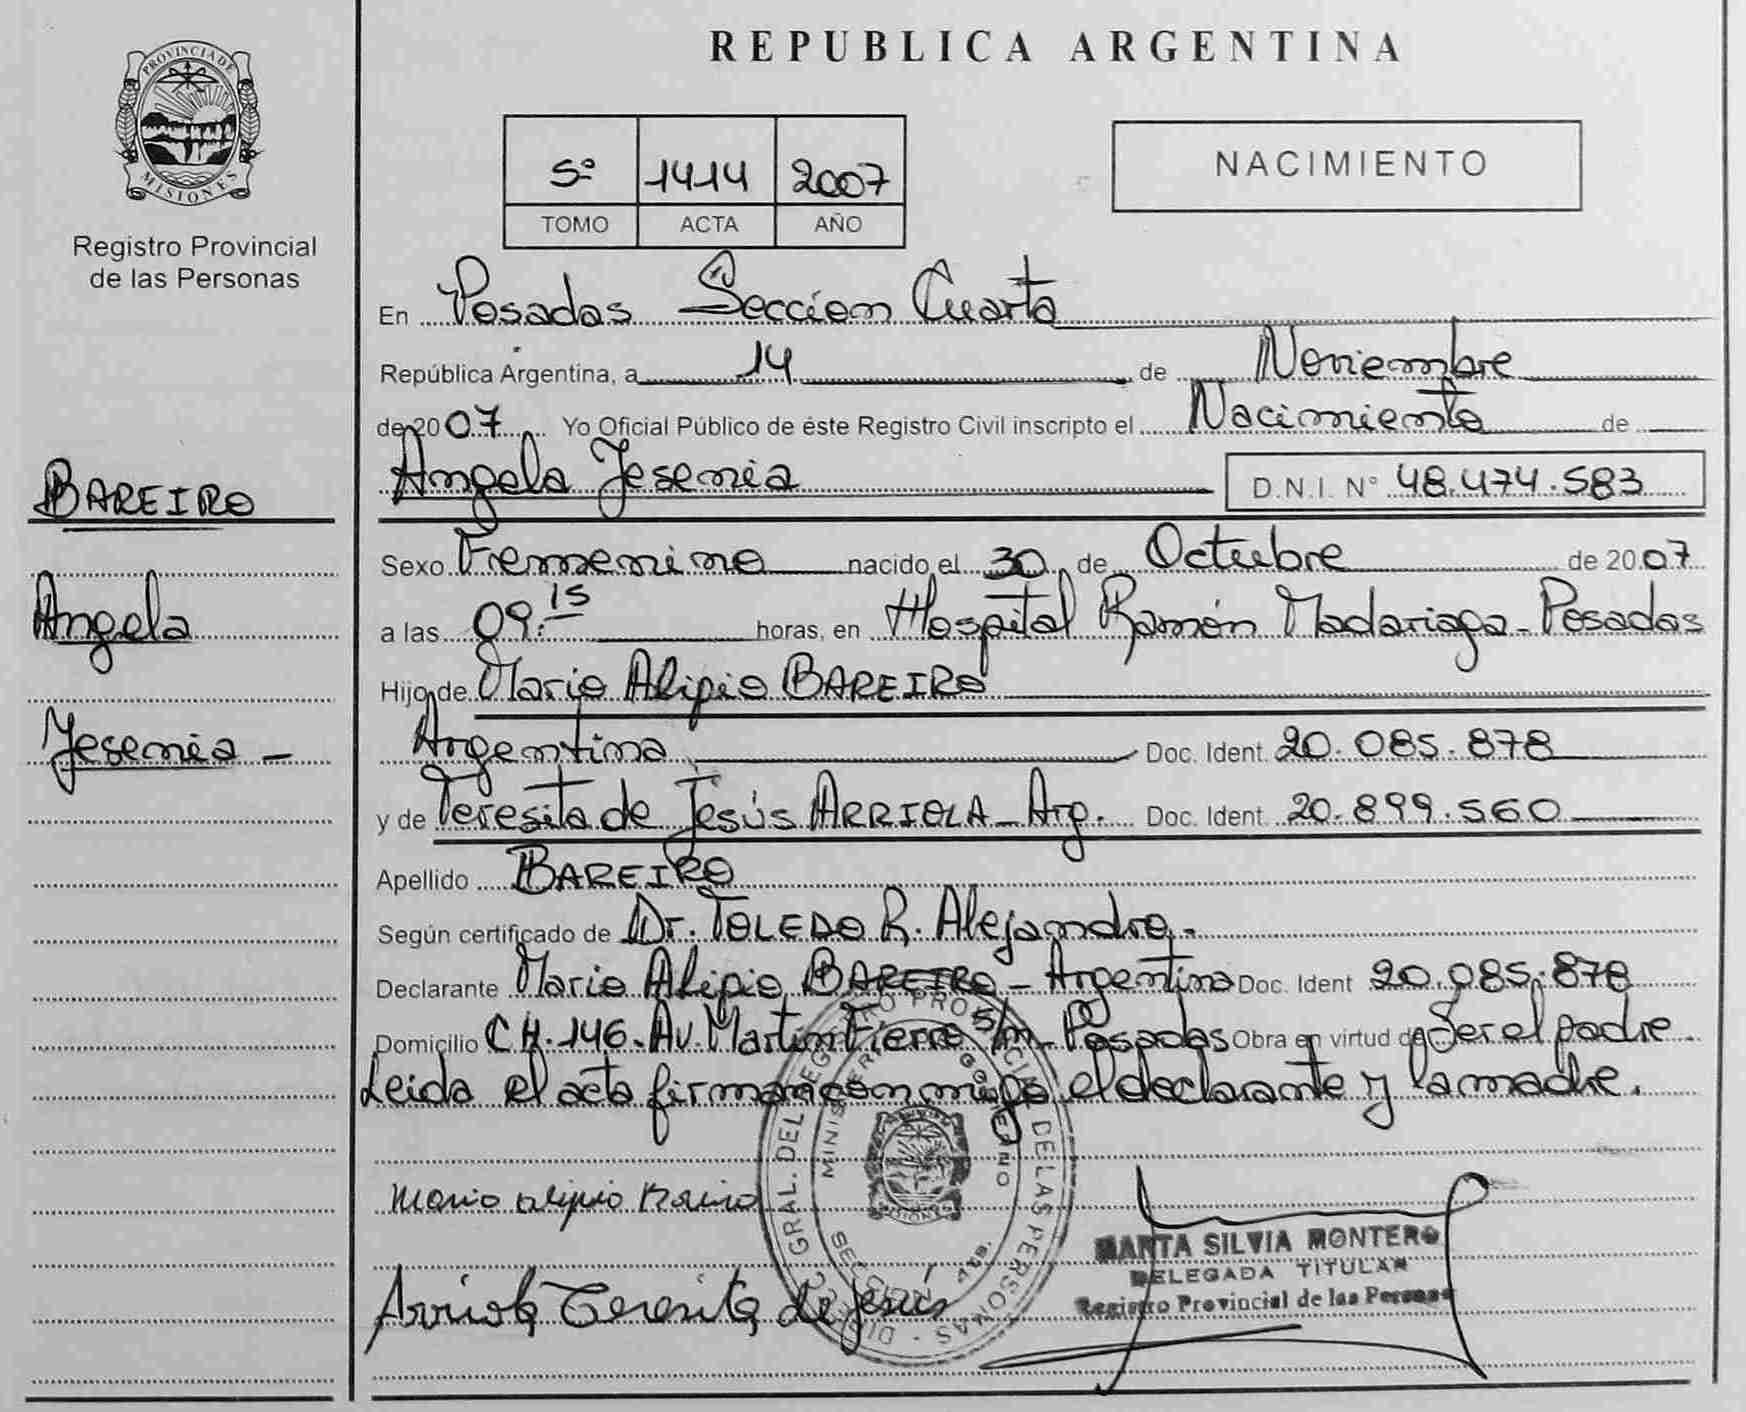 REPUBLICA ARGENTINA
PROVINCIA DE
MISIONES
Registro Provincial
de las Personas
5º 1414 2007
TOMO ACTA AÑO
NACIMIENTO
En Posadas Seccion Cuarta
República Argentina, a 14 de Noviembre
de 2007 Yo Oficial Público de éste Registro Civil inscripto el Nacimiento de
Angela Yesenia D.N.I. N° 48.474.583
BAREIRO
Angela
Yesenia -
Sexo Femenino nacido el 30 de Octubre de 2007
a las 09:15 horas, en Hospital Ramón Madariaga - Posadas
Hijo de Mario Alipio BAREIRO
Argentina Doc. Ident. 20.085.878
y de Teresita de Jesús ARRIOLA - Arg. Doc. Ident. 20.899.560
Apellido BAREIRO
Según certificado de Dr. TOLEDO R. Alejandro.-
Declarante Mario Alipio BAREIRO - Argentino Doc. Ident 20.085.878
Domicilio CH. 146. Av. Martin Fierro S/n - Posadas Obra en virtud de Ser el padre.
Leida el acta firman con migo el declarante y la madre.
Mario Alipio Bareiro
Arriola Teresita de Jesús
MARTA SILVIA MONTERO
DELEGADA TITULAR
Registro Provincial de las Personas
GRAL. DEL REGISTRO PROVINCIAL DE LAS PERSONAS
MISIONES